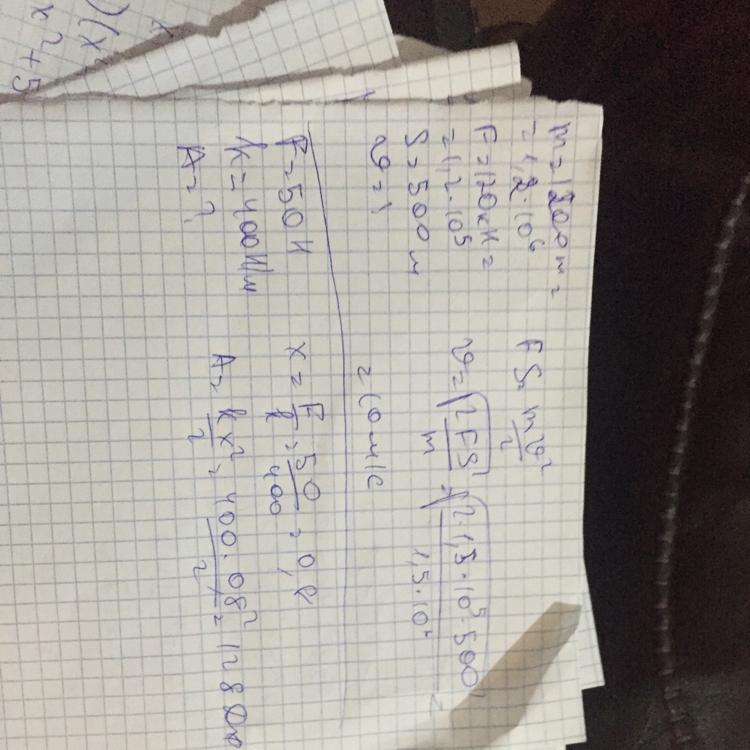 m=1200т=
=1,2·10⁶
F=120кН=
=1,2·10⁵
S=500м
υ=?
FS=mυ²/2
υ=√(2FS/m)=√(2·1,5·10⁵·500/1,5·10⁴)=
=10м/с
F=50Н
k=400Н/м
A=?
x=F/k=50/400=0,8
A=kx²/2=400·08²/2=128Дж
)(x
x²+5
x